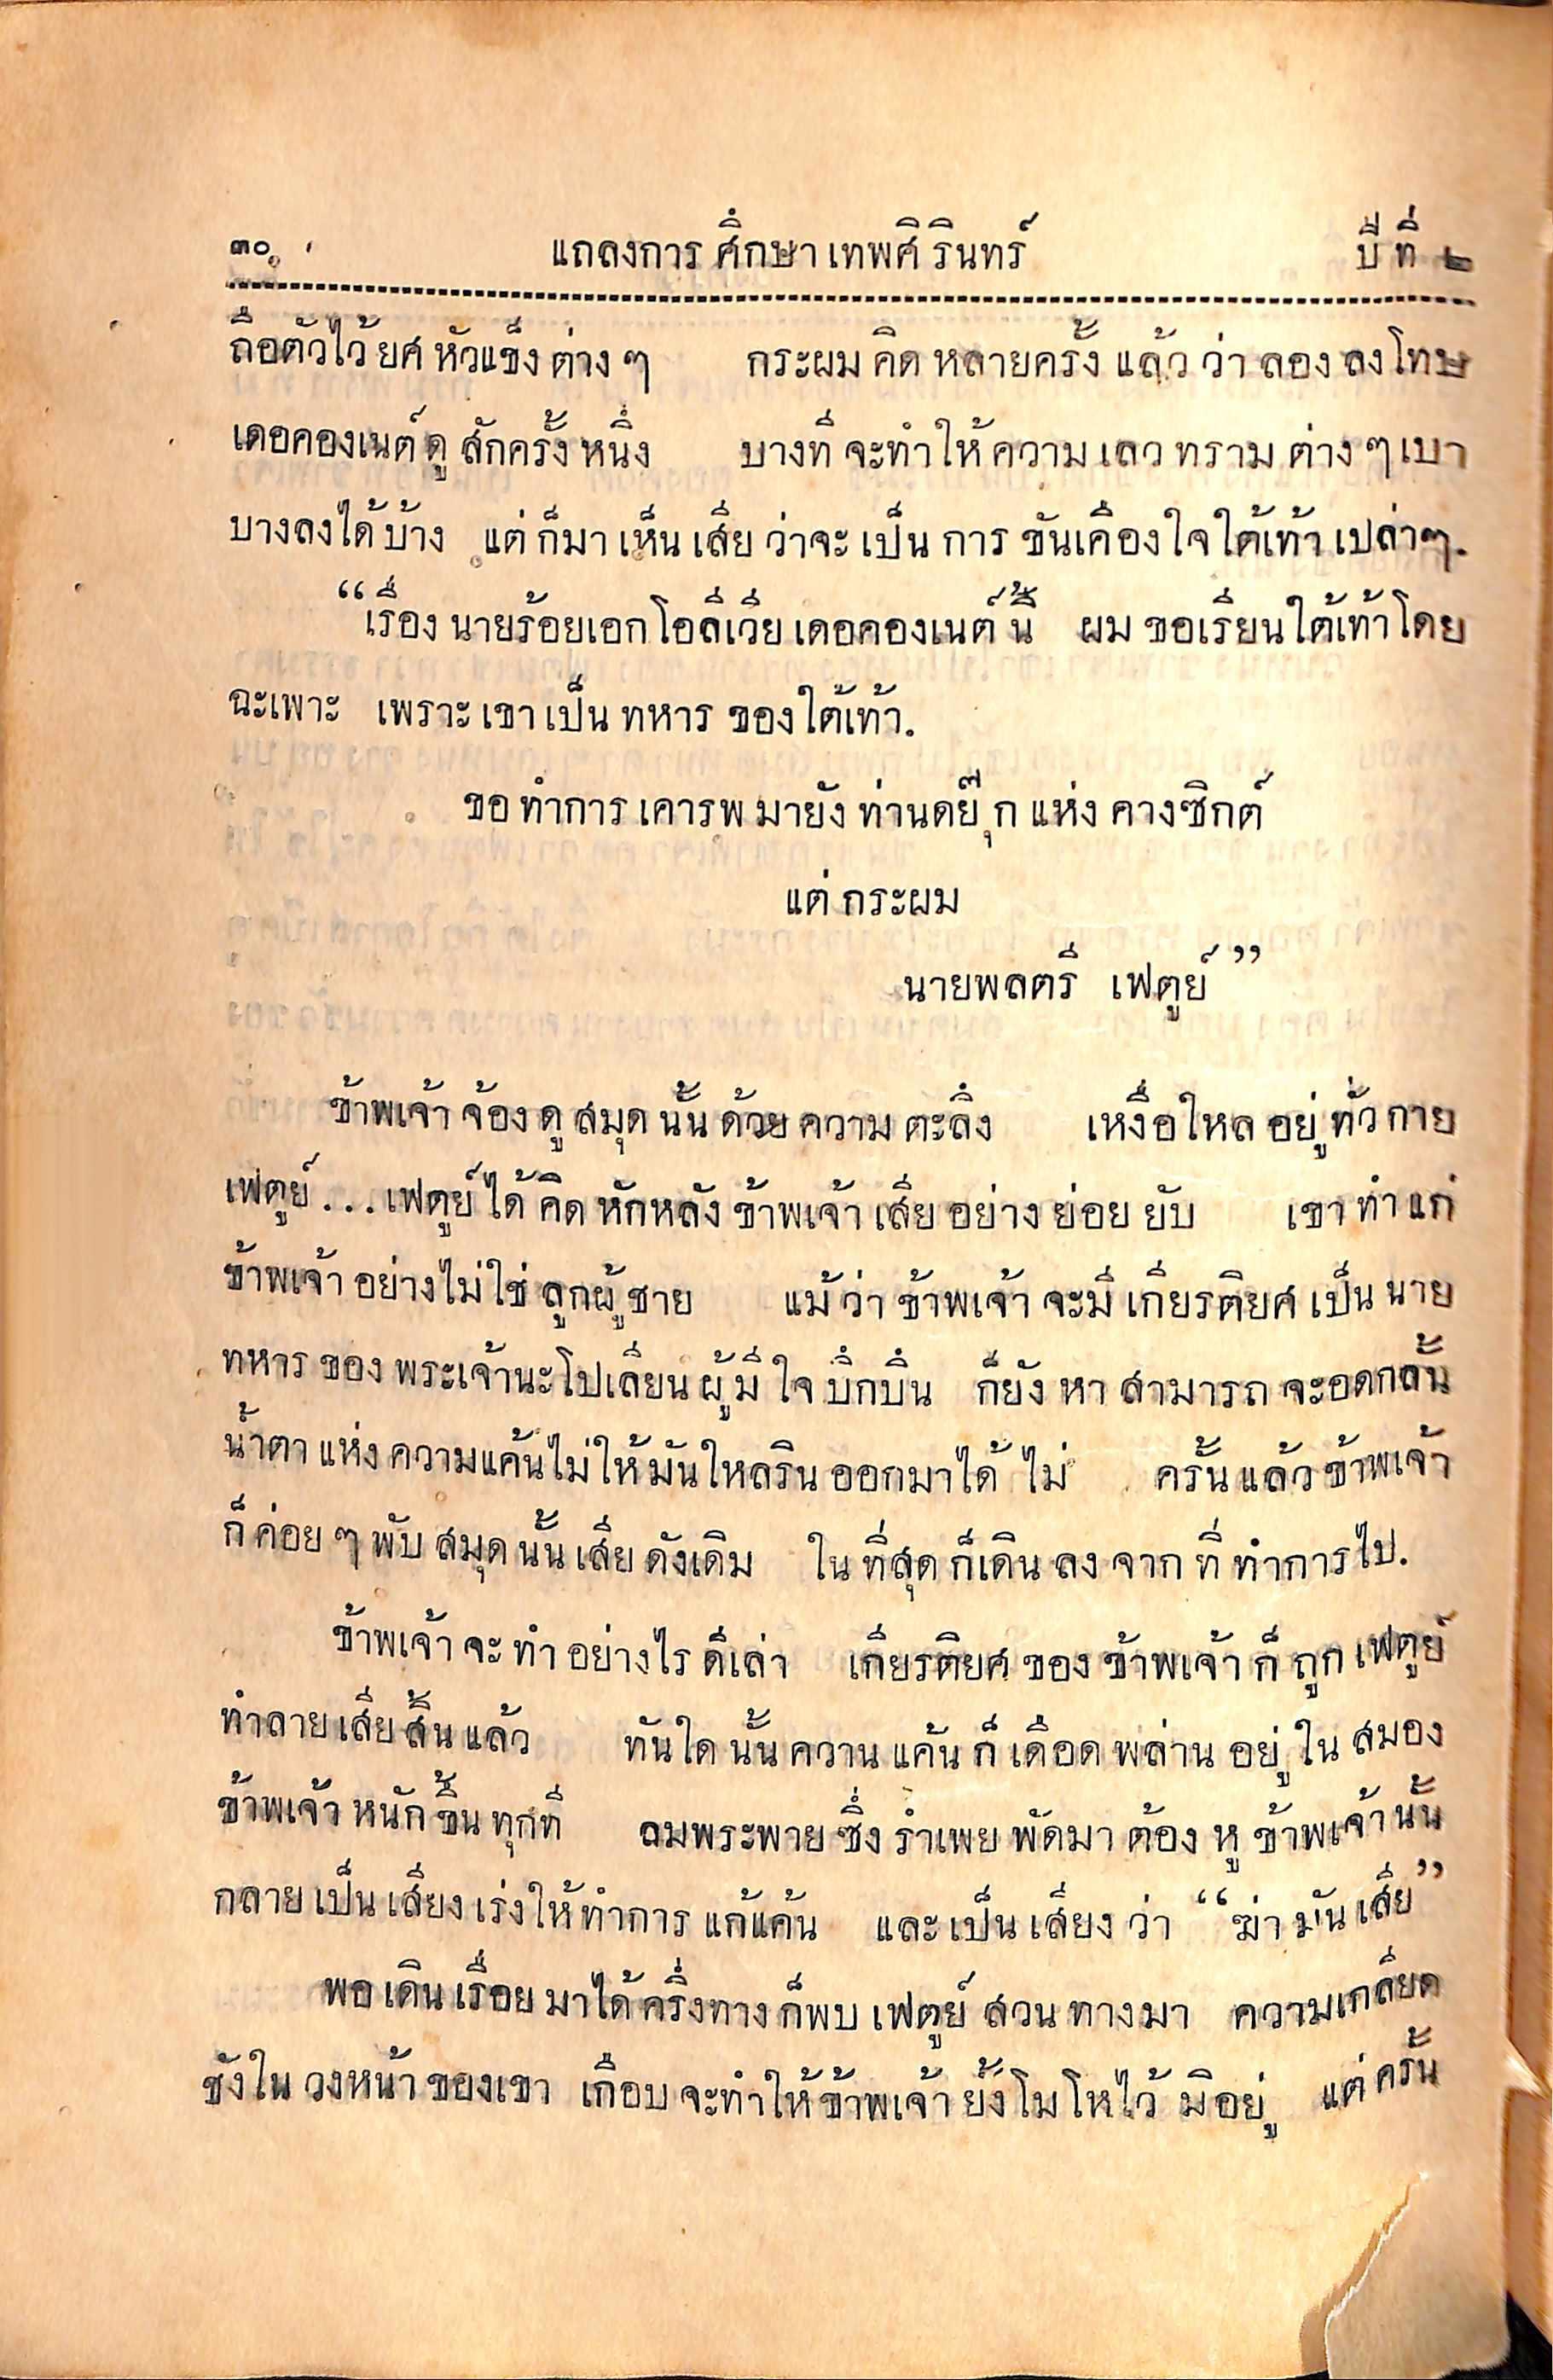 ๓๐ แถลงการศึกษาเทพศิรินทร์ ปีที่ ๒
ถือตัวไว้ยศหัวแข็งต่างๆ กระผมคิดหลายครั้งแล้วว่าลองลงโทษ
เดอคองเนต์ดูสักครั้งหนึ่ง บางทีจะทำให้ความเลวทรามต่างๆเบา
บางลงได้บ้าง แต่ก็มาเห็นเสียว่าจะเป็นการขันเคืองใจใต้เท้าเปล่าๆ.
“เรื่องนายร้อยเอกโอลีเวียเดอคองเนต์นี้ ผมขอเรียนใต้เท้าโดย
ฉะเพาะ เพราะเขาเป็นทหารของใต้เท้า.
ขอทำการเคารพมายังท่านดยุ๊กแห่งควางซิกต์
แต่กระผม
นายพลตรี เฟตูย์”
ข้าพเจ้าจ้องดูสมุดนั้นด้วยความตะลึง เหงื่อใหลอยู่ทั่วกาย
เฟตูย์...เฟตูย์ได้คิดหักหลังข้าพเจ้าเสียอย่างย่อยยับ เขาทำแก่
ข้าพเจ้าอย่างไม่ใช่ลูกผู้ชาย แม้ว่าข้าพเจ้าจะมีเกียรติยศเป็นนาย
ทหารของพระเจ้านะโปเลียนผู้มีใจบึกบึน ก็ยังหาสามารถจะอดกลั้น
น้ำตาแห่งความแค้นไม่ให้มันใหลรินออกมาได้ไม่ ครั้นแล้วข้าพเจ้า
ก็ค่อยๆพับสมุดนั้นเสียดังเดิม ในที่สุดก็เดินลงจากที่ทำการไป.
ข้าพเจ้าจะทำอย่างไรดีเล่า เกียรติยศของข้าพเจ้าก็ถูกเฟตูย์
ทำลายเสียสิ้นแล้ว ทันใดนั้นควานแค้นก็เดือดพล่านอยู่ในสมอง
ข้าพเจ้าหนักขึ้นทุกที ลมพระพายซึ่งรำเพยพัดมาต้องหูข้าพเจ้านั้น
กลายเป็นเสียงเร่งให้ทำการแก้แค้น และเป็นเสียงว่า “ฆ่ามันเสีย”
พอเดินเรื่อยมาได้ครึ่งทางก็พบเฟตูย์สวนทางมา ความเกลียด
ชังในวงหน้าของเขา เกือบจะทำให้ข้าพเจ้ายั้งโมโหไว้มิอยู่ แต่ครั้น